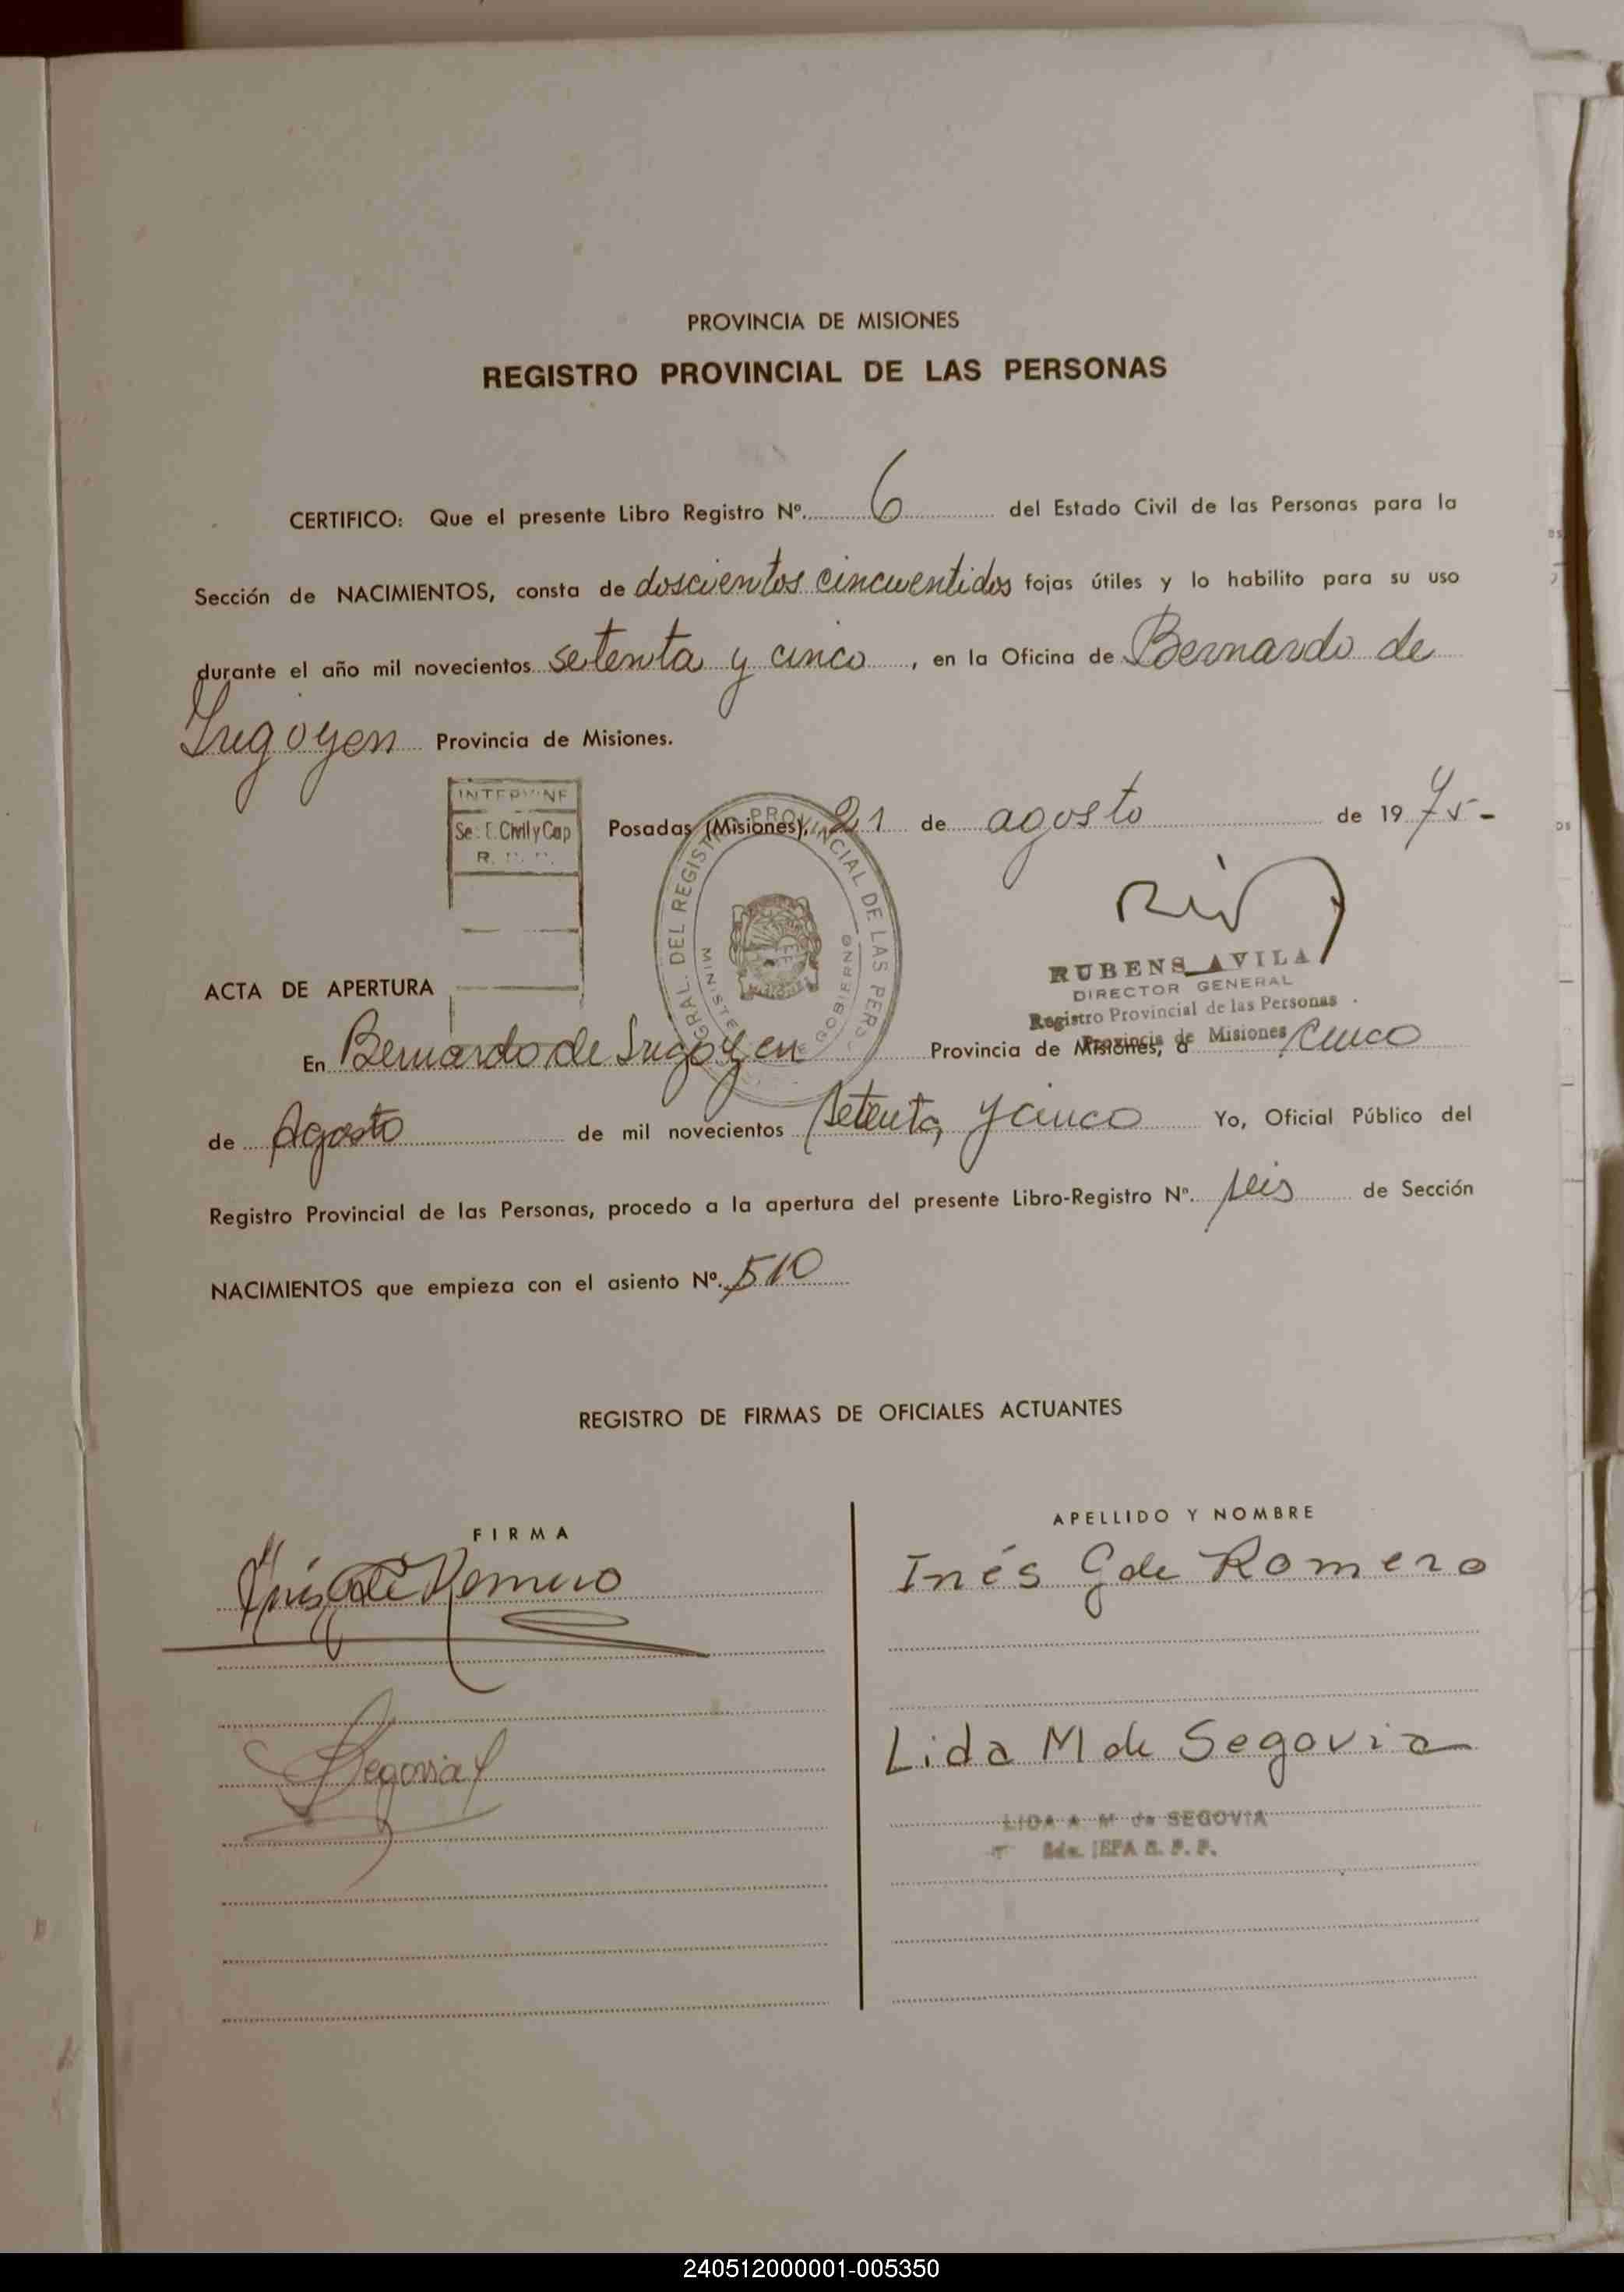 PROVINCIA DE MISIONES
REGISTRO PROVINCIAL DE LAS PERSONAS
CERTIFICO: Que el presente Libro Registro Nº. 6 del Estado Civil de las Personas para la
Sección de NACIMIENTOS, consta de doscientos cincuentidos fojas útiles y lo habilito para su uso
durante el año mil novecientos setenta y cinco, en la Oficina de Bernardo de
Irigoyen Provincia de Misiones.
INTERVINE
Civil y Cap
Posadas (Misiones), 21 de agosto de 1975-
RUBENS AVILA
DIRECTOR GENERAL
Registro Provincial de las Personas
Provincia de Misiones
GRAL. DEL REGISTRO PROVINCIAL DE LAS PERS
GOBIERNO
MISIONES
ACTA DE APERTURA
En Bernardo de Irigoyen Provincia de Misiones, a cinco
de Agosto de mil novecientos setenta y cinco Yo, Oficial Público del
Registro Provincial de las Personas, procedo a la apertura del presente Libro-Registro Nº. seis de Sección
NACIMIENTOS que empieza con el asiento Nº. 510
REGISTRO DE FIRMAS DE OFICIALES ACTUANTES
FIRMA
APELLIDO Y NOMBRE
Inés G de Romero
Inés G de Romero
Segovia
Lida M de Segovia
LIDA A. M de SEGOVIA
240512000001-005350